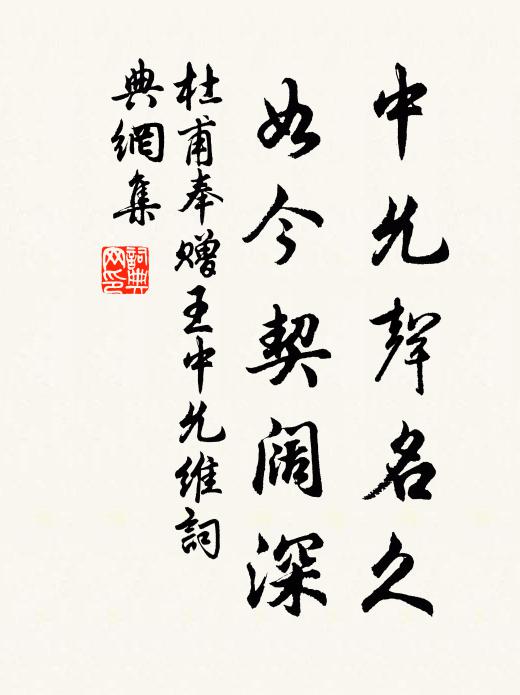 中允聲名久
如今契闊深
杜甫奉贈王中允維詞
典網集
詞典
网印